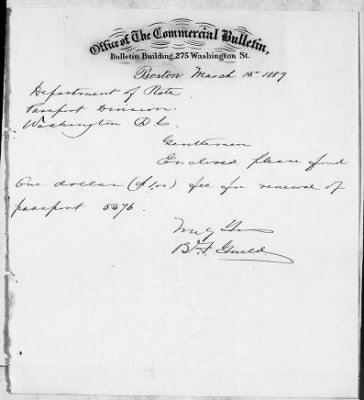 Office of The Commercial Bulletin,
Bulletin Building, 275 Washington St.
Boston March 15th 1889
Department of State
Passport Division.
Washington D.C.
Gentlemen
Enclosed please find
One dollar ($1.00) fee for renewal of
passport 5076.
Truly Yrs
B. F. Guild